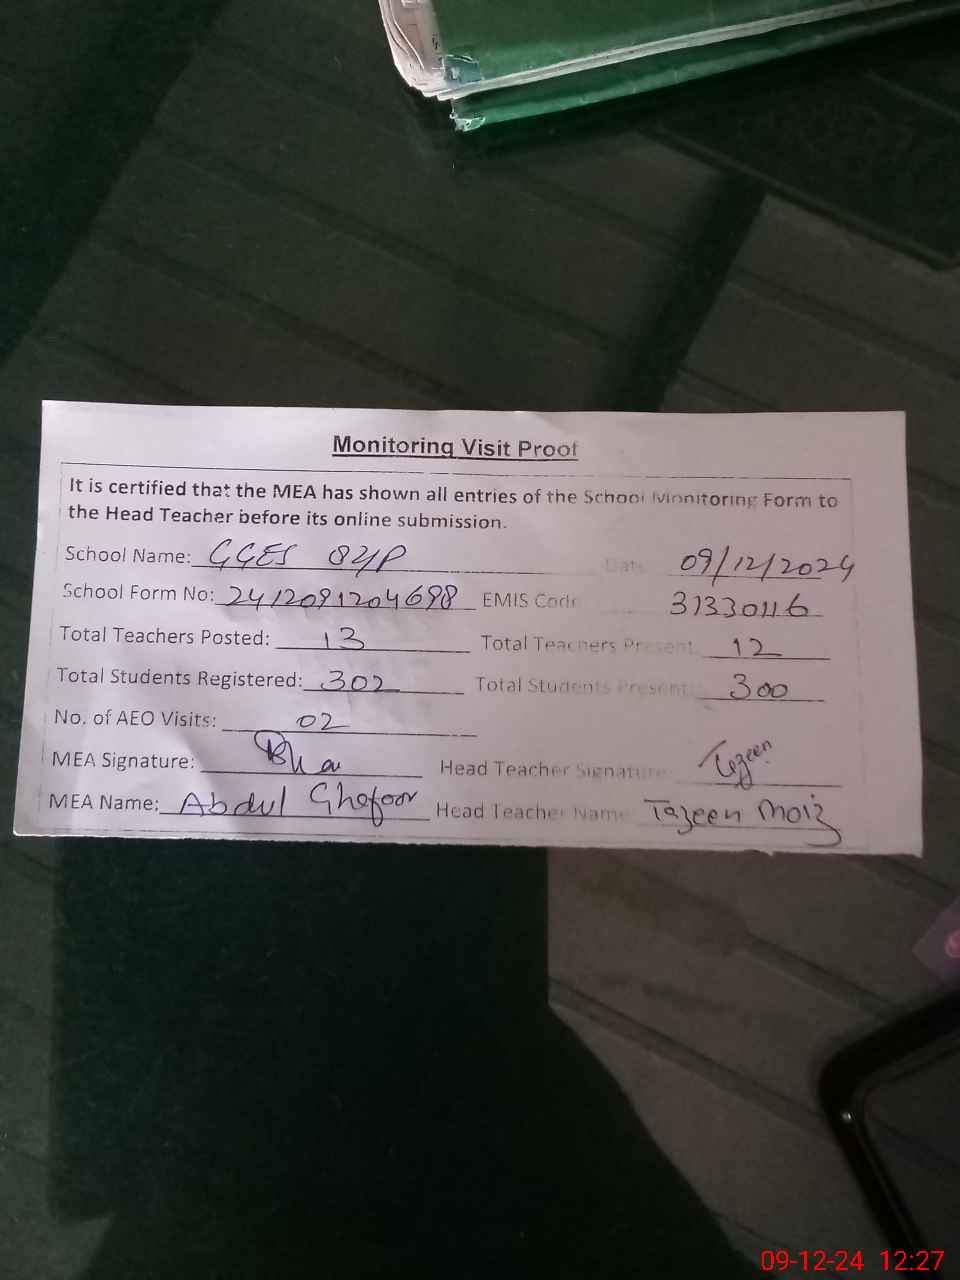 Monitoring Visit Proof
It is certified that the MEA has shown all entries of the School Monitoring Form to
the Head Teacher before its online submission.
School Name: GGES 84/P Date 09/12/2024
School Form No: 2412091204698 EMIS Code 31330116
Total Teachers Posted: 13 Total Teachers Present: 12
Total Students Registered: 302 Total Students Present: 300
No. of AEO Visits: 02
MEA Signature: Head Teacher Signature: Tazeen
MEA Name: Abdul Ghafoor Head Teacher Name Tazeen Moiz
09-12-24 12:27